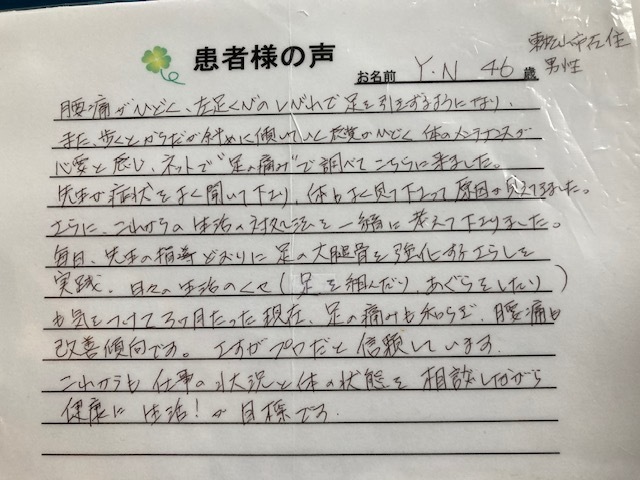 患者様の声
東松山市在住
男性
お名前 Y・N 46 歳
腰痛がひどく、左足くびのしびれで足を引きずるようになり、
また、歩くとからだが斜めに傾いていく感覚がひどく体のメンテナンスが
必要と感じ、ネットで"足の痛み"で調べてこちらに来ました。
先生が症状をよく聞いて下り、体もよく見て下さって原因が見えてきました。
さらに、これからの生活の対処法を一緒に考えて下りました。
毎日、先生の指導どおりに足の大腿骨を強化するようしを
実践、日々の生活のくせ(足を組んだり、あぐらをしたり)
も気をつけて3ヶ月たった現在、足の痛みも和らぎ、腰痛も
改善傾向です。さすがプロだと信頼しています。
これからも仕事の状況と体の状態を相談しながら
健康に生活!が目標です。